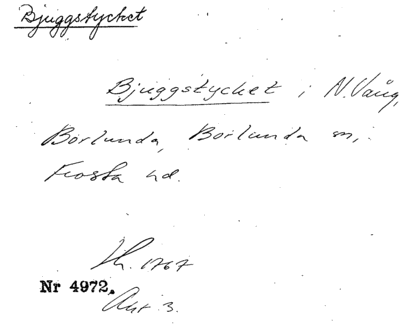 Bjuggstycket
Bjuggstycket i N. Vång,
Borlunda, Borlunda sn,
Frosta hd.
1767
Nr 4972.
Akt 3.